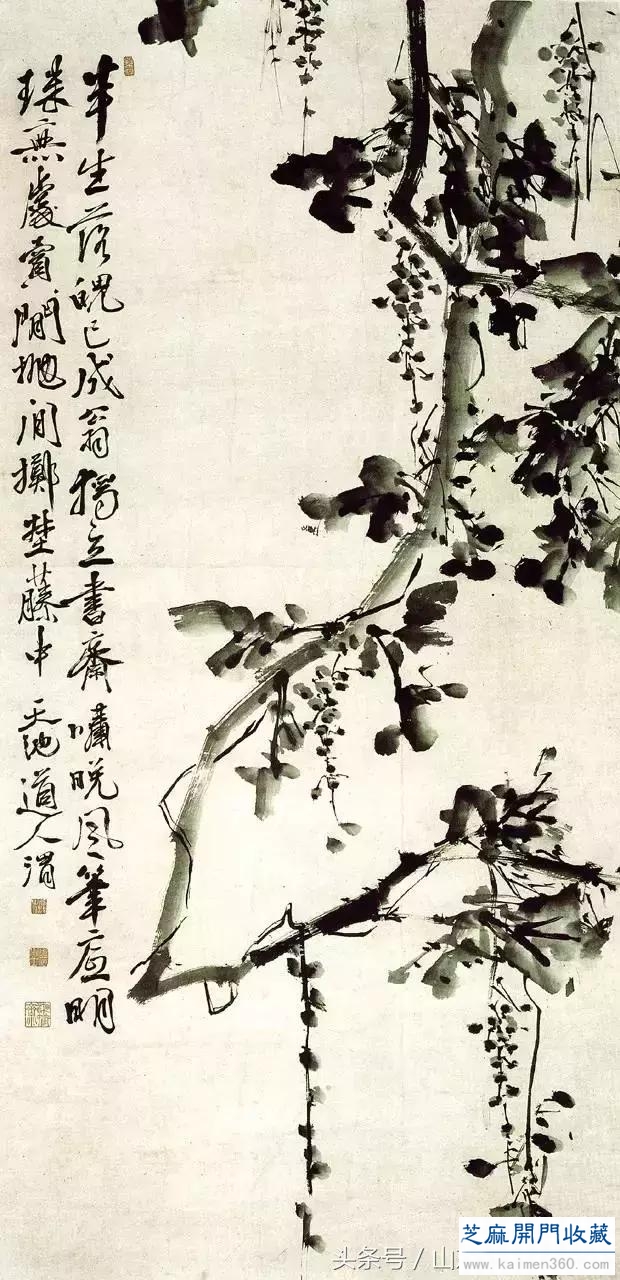 半生落魄已成翁獨立書齋嘯晚風筆底明
珠無處賣閒拋閒擲埜藤中天池道人渭
头条号 / 山
芝麻開門收藏
www.kaimen360.com